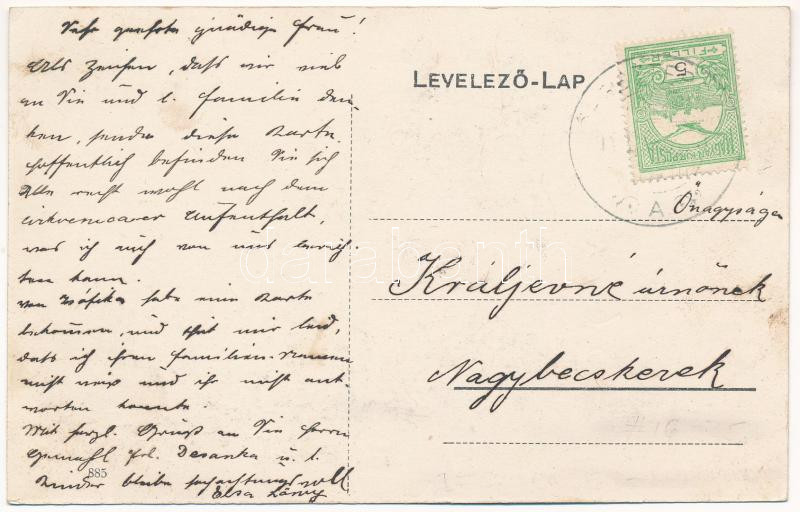 Sehr geehrte gnädige Frau!
Als Zeichen, dass wir viel
an Sie und l. Familie den-
ken, sende diese Karte.
Hoffentlich befinden Sie sich
Alle recht wohl nach dem
cirkvenicaer Aufenthalt,
was ich auch von uns berich-
ten kann.
Von Zsófika habe eine Karte
bekommen, und thut mir leid,
dass ich ihren Familien-Namen
nicht weiß und ihr nicht ant-
worten konnte.
Mit herzl. Gruss an Sie Herrn
Gemahl Frl. Desanka u. l.
Kinder bleibe hochachtungsvoll
Elsa
885
LEVELEZŐ-LAP
MAGYAR KIR. POSTA
5
FILLÉR
Őnagysága
Králjevné úrnőnek
Nagybecskerek
darabanth